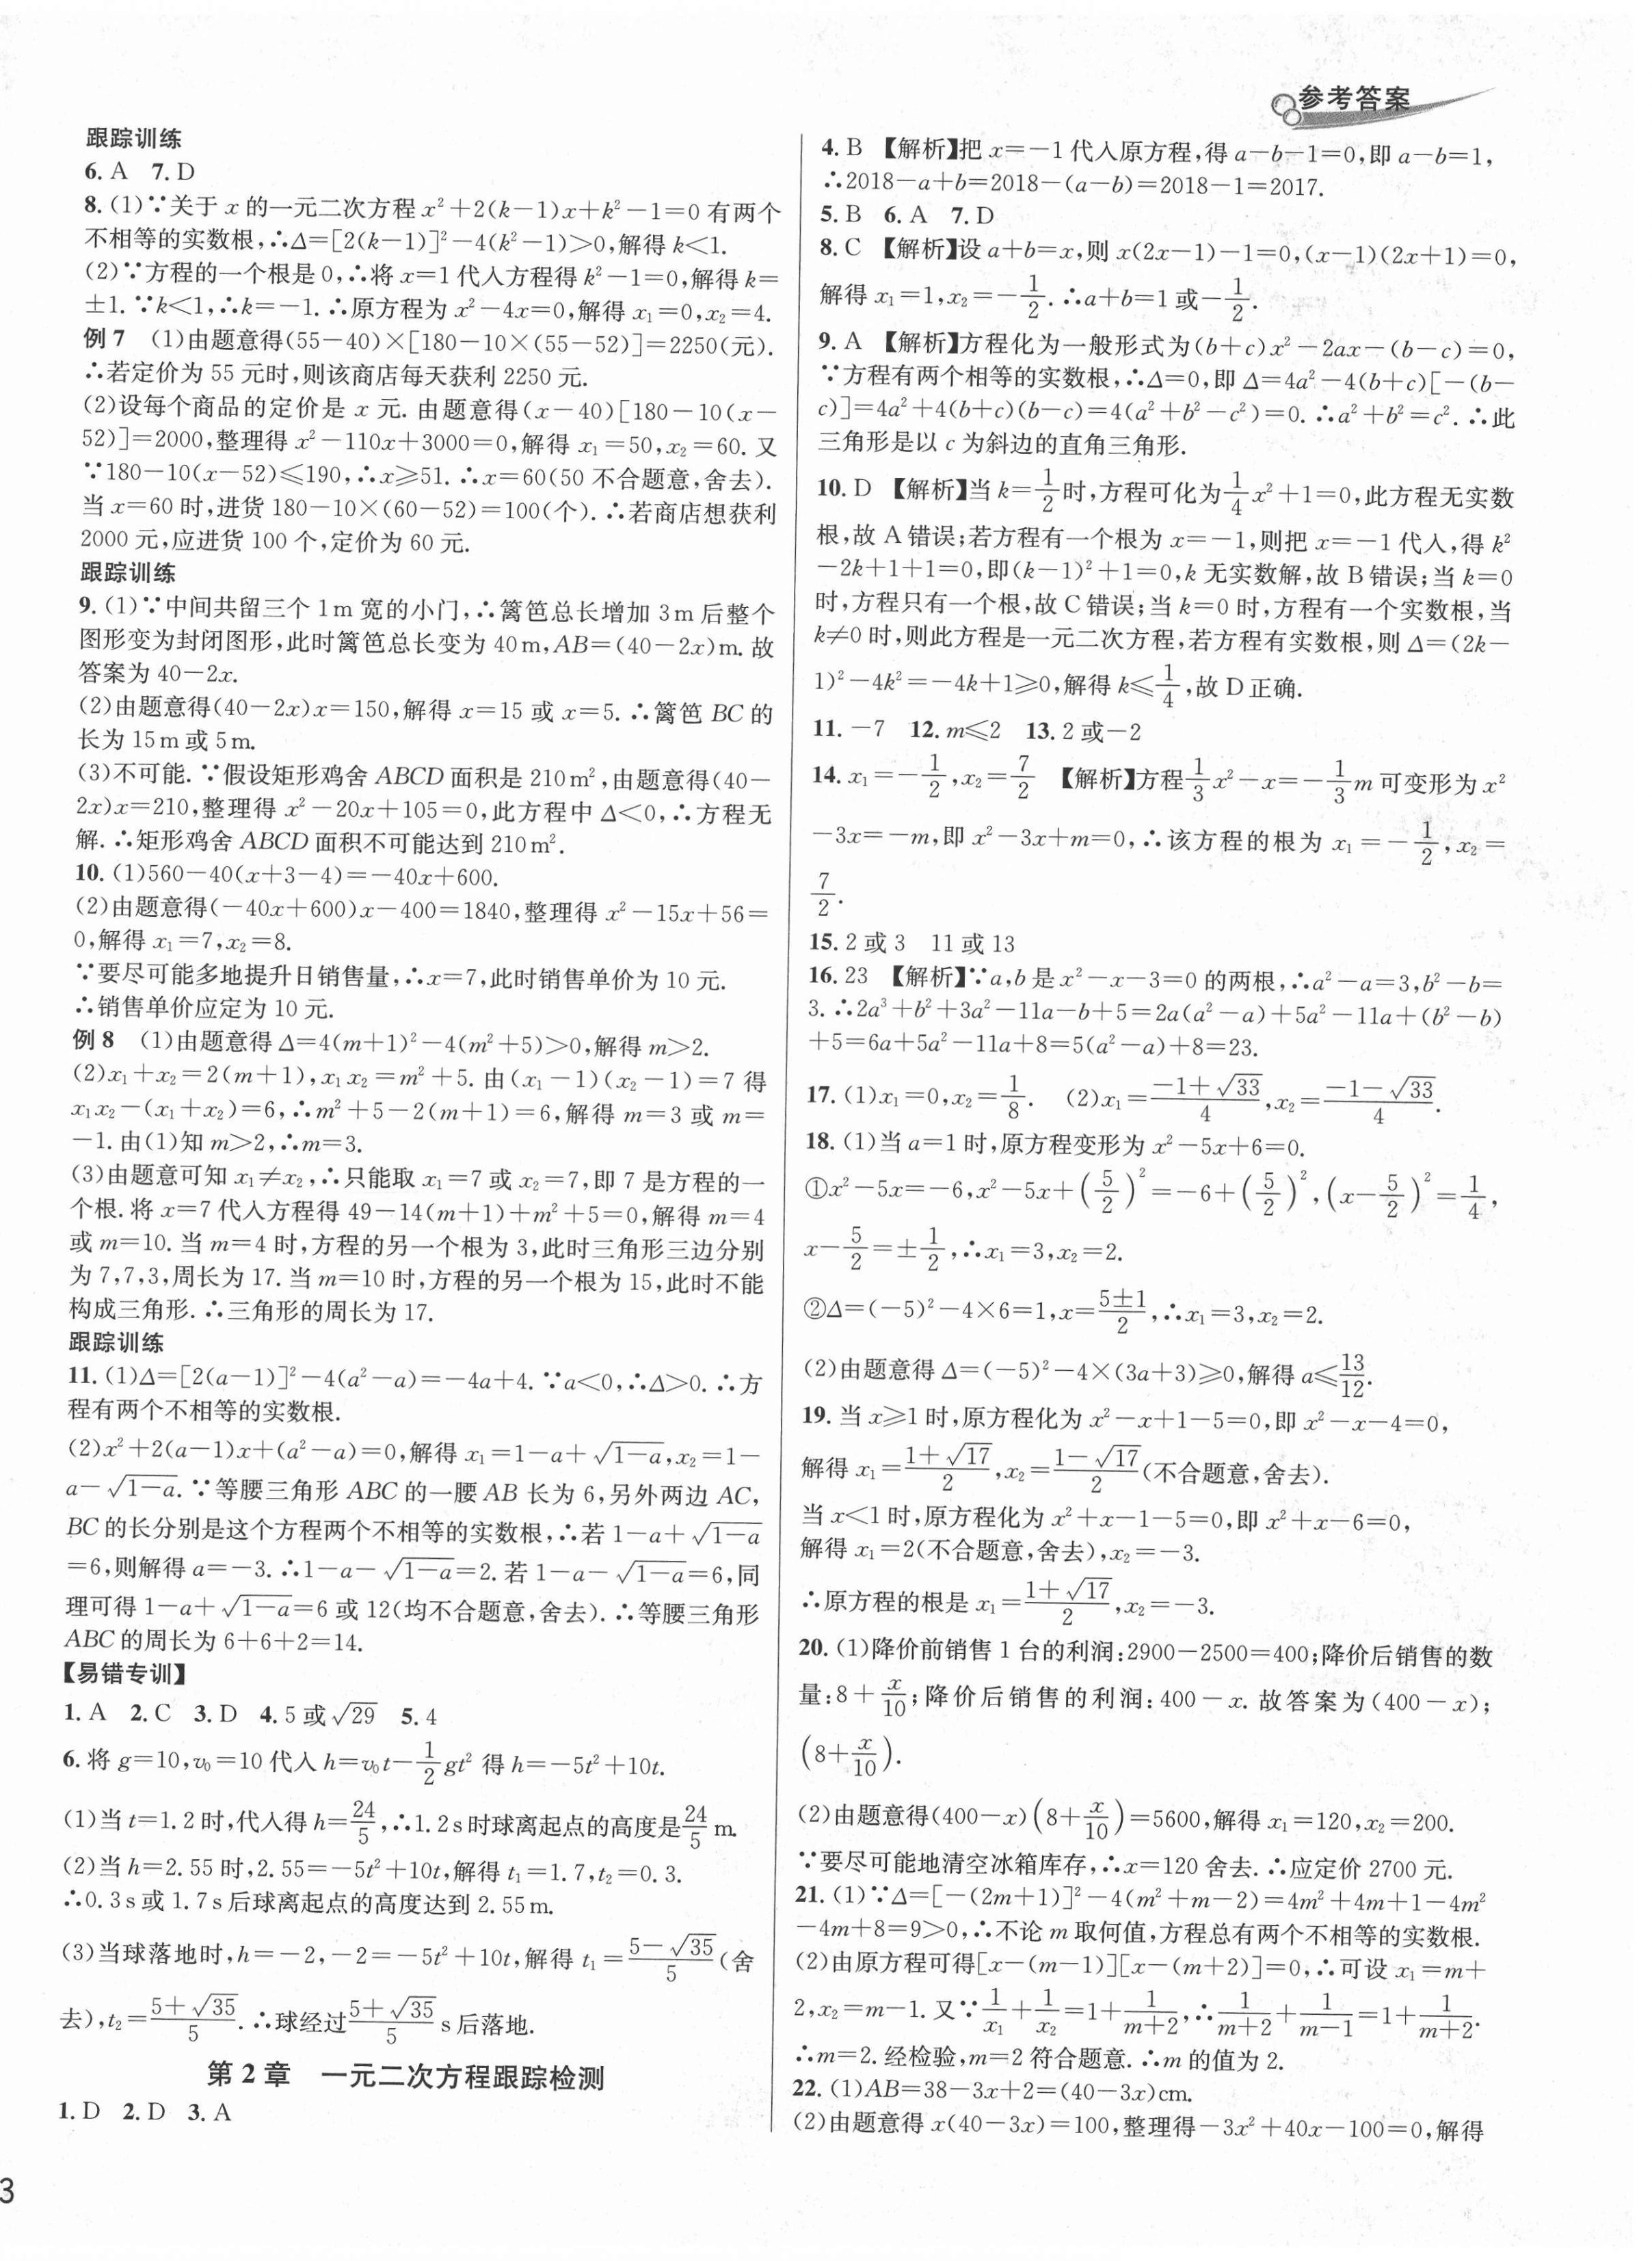 参考答案
跟踪训练
6. A 7. D
8. (1)∵关于 x 的一元二次方程 x²+2(k−1)x+k²−1=0 有两个
不相等的实数根,∴Δ=[2(k−1)]²−4(k²−1)>0,解得 k<1.
(2)∵方程的一个根是 0,∴将 x=1 代入方程得 k²−1=0,解得 k=
±1. ∵k<1,∴k=−1. ∴原方程为 x²−4x=0,解得 x₁=0,x₂=4.
例 7 (1)由题意得(55−40)×[180−10×(55−52)]=2250(元).
∴若定价为 55 元时,则该商店每天获利 2250 元.
(2)设每个商品的定价是 x 元. 由题意得(x−40)[180−10(x−
52)]=2000,整理得 x²−110x+3000=0,解得 x₁=50,x₂=60. 又
∵180−10(x−52)≤190,∴x≥51. ∴x=60(50 不合题意,舍去).
当 x=60 时,进货 180−10×(60−52)=100(个). ∴若商店想获利
2000 元,应进货 100 个,定价为 60 元.
跟踪训练
9. (1)∵中间共留三个 1m 宽的小门,∴篱笆总长增加 3m 后整个
图形变为封闭图形,此时篱笆总长变为 40m,AB=(40−2x)m. 故
答案为 40−2x.
(2)由题意得(40−2x)x=150,解得 x=15 或 x=5. ∴篱笆 BC 的
长为 15m 或 5m.
(3)不可能. ∵假设矩形鸡舍 ABCD 面积是 210m²,由题意得(40−
2x)x=210,整理得 x²−20x+105=0,此方程中 Δ<0,∴方程无
解. ∴矩形鸡舍 ABCD 面积不可能达到 210m².
10. (1)560−40(x+3−4)=−40x+600.
(2)由题意得(−40x+600)x−400=1840,整理得 x²−15x+56=
0,解得 x₁=7,x₂=8.
∵要尽可能多地提升日销售量,∴x=7,此时销售单价为 10 元.
∴销售单价应定为 10 元.
例 8 (1)由题意得 Δ=4(m+1)²−4(m²+5)>0,解得 m>2.
(2)x₁+x₂=2(m+1),x₁x₂=m²+5. 由(x₁−1)(x₂−1)=7 得
x₁x₂−(x₁+x₂)=6,∴m²+5−2(m+1)=6,解得 m=3 或 m=
−1. 由(1)知 m>2,∴m=3.
(3)由题意可知 x₁≠x₂,∴只能取 x₁=7 或 x₂=7,即 7 是方程的一
个根. 将 x=7 代入方程得 49−14(m+1)+m²+5=0,解得 m=4
或 m=10. 当 m=4 时,方程的另一个根为 3,此时三角形三边分别
为 7,7,3,周长为 17. 当 m=10 时,方程的另一个根为 15,此时不能
构成三角形. ∴三角形的周长为 17.
跟踪训练
11. (1)Δ=[2(a−1)]²−4(a²−a)=−4a+4. ∵a<0,∴Δ>0. ∴方
程有两个不相等的实数根.
(2)x²+2(a−1)x+(a²−a)=0,解得 x₁=1−a+√(1−a),x₂=1−
a−√(1−a). ∵等腰三角形 ABC 的一腰 AB 长为 6,另外两边 AC,
BC 的长分别是这个方程两个不相等的实数根,∴若 1−a+√(1−a)
=6,则解得 a=−3. ∴1−a−√(1−a)=2. 若 1−a−√(1−a)=6,同
理可得 1−a+√(1−a)=6 或 12(均不合题意,舍去). ∴等腰三角形
ABC 的周长为 6+6+2=14.
【易错专训】
1. A 2. C 3. D 4. 5 或√29 5. 4
6. 将 g=10,v₀=10 代入 h=v₀t−1/2gt² 得 h=−5t²+10t.
(1)当 t=1.2 时,代入得 h=24/5,∴1.2s 时球离起点的高度是24/5m.
(2)当 h=2.55 时,2.55=−5t²+10t,解得 t₁=1.7,t₂=0.3.
∴0.3s 或 1.7s 后球离起点的高度达到 2.55m.
(3)当球落地时,h=−2,−2=−5t²+10t,解得 t₁=(5−√35)/5(舍
去),t₂=(5+√35)/5. ∴球经过(5+√35)/5 s 后落地.
第 2 章 一元二次方程跟踪检测
1. D 2. D 3. A
4. B 【解析】把 x=−1 代入原方程,得 a−b−1=0,即 a−b=1,
∴2018−a+b=2018−(a−b)=2018−1=2017.
5. B 6. A 7. D
8. C 【解析】设 a+b=x,则 x(2x−1)−1=0,(x−1)(2x+1)=0,
解得 x₁=1,x₂=−1/2. ∴a+b=1 或−1/2.
9. A 【解析】方程化为一般形式为(b+c)x²−2ax−(b−c)=0,
∵方程有两个相等的实数根,∴Δ=0,即 Δ=4a²−4(b+c)[−(b−
c)]=4a²+4(b+c)(b−c)=4(a²+b²−c²)=0. ∴a²+b²=c². ∴此
三角形是以 c 为斜边的直角三角形.
10. D 【解析】当 k=1/2时,方程可化为1/4x²+1=0,此方程无实数
根,故 A 错误;若方程有一个根为 x=−1,则把 x=−1 代入,得 k²
−2k+1+1=0,即(k−1)²+1=0,k 无实数解,故 B 错误;当 k=0
时,方程只有一个根,故 C 错误;当 k=0 时,方程有一个实数根,当
k≠0 时,则此方程是一元二次方程,若方程有实数根,则 Δ=(2k−
1)²−4k²=−4k+1≥0,解得 k≤1/4,故 D 正确.
11. −7 12. m≤2 13. 2 或−2
14. x₁=−1/2,x₂=7/2 【解析】方程1/3x²−x=−1/3m 可变形为 x²
−3x=−m,即 x²−3x+m=0,∴该方程的根为 x₁=−1/2,x₂=
7/2.
15. 2 或 3 11 或 13
16. 23 【解析】∵a,b 是 x²−x−3=0 的两根,∴a²−a=3,b²−b=
3. ∴2a³+b²+3a²−11a−b+5=2a(a²−a)+5a²−11a+(b²−b)
+5=6a+5a²−11a+8=5(a²−a)+8=23.
17. (1)x₁=0,x₂=1/8. (2)x₁=(−1+√33)/4,x₂=(−1−√33)/4.
18. (1)当 a=1 时,原方程变形为 x²−5x+6=0.
①x²−5x=−6,x²−5x+(5/2)²=−6+(5/2)²,(x−5/2)²=1/4,
x−5/2=±1/2,∴x₁=3,x₂=2.
②Δ=(−5)²−4×6=1,x=(5±1)/2,∴x₁=3,x₂=2.
(2)由题意得 Δ=(−5)²−4×(3a+3)≥0,解得 a≤13/12.
19. 当 x≥1 时,原方程化为 x²−x+1−5=0,即 x²−x−4=0,
解得 x₁=(1+√17)/2,x₂=(1−√17)/2(不合题意,舍去).
当 x<1 时,原方程化为 x²+x−1−5=0,即 x²+x−6=0,
解得 x₁=2(不合题意,舍去),x₂=−3.
∴原方程的根是 x₁=(1+√17)/2,x₂=−3.
20. (1)降价前销售 1 台的利润:2900−2500=400;降价后销售的数
量:8+x/10;降价后销售的利润:400−x. 故答案为(400−x);
(8+x/10).
(2)由题意得(400−x)(8+x/10)=5600,解得 x₁=120,x₂=200.
∵要尽可能地清空冰箱库存,∴x=120 舍去. ∴应定价 2700 元.
21. (1)∵Δ=[−(2m+1)]²−4(m²+m−2)=4m²+4m+1−4m²
−4m+8=9>0,∴不论 m 取何值,方程总有两个不相等的实数根.
(2)由原方程可得[x−(m−1)][x−(m+2)]=0,∴可设 x₁=m+
2,x₂=m−1. 又∵1/x₁+1/x₂=1+1/(m+2),∴1/(m+2)+1/(m−1)=1+1/(m+2).
∴m=2. 经检验,m=2 符合题意. ∴m 的值为 2.
22. (1)AB=38−3x+2=(40−3x)cm.
(2)由题意得 x(40−3x)=100,整理得−3x²+40x−100=0,解得
3